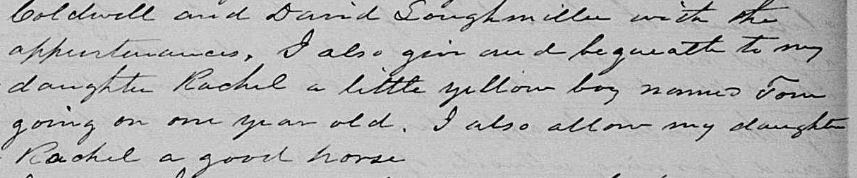 Coldwell and David Loughmiller with the
appurtenances, I also give and bequeath to my
daughter Rachel a little yellow boy named Tom
going on one year old. I also allow my daughter
Rachel a good horse